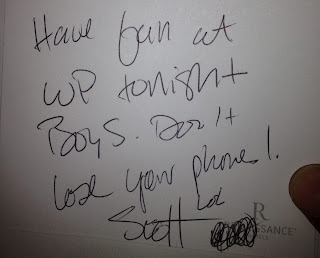 Have fun at
WP tonight
Boys. Don't
lose your phones!
Scott lol
R
SSANCE®